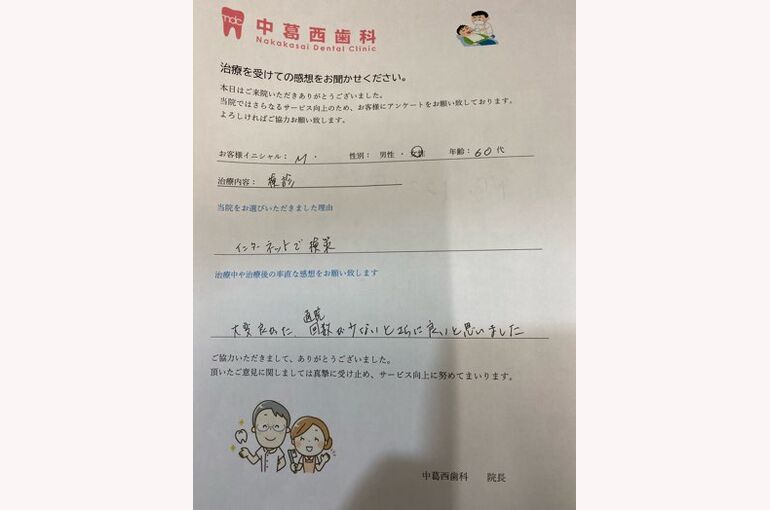 ndc
中葛西歯科
Nakakasai Dental Clinic
治療を受けての感想をお聞かせください。
本日はご来院いただきありがとうございました。
当院ではさらなるサービス向上のため、お客様にアンケートをお願い致しております。
よろしければご協力お願い致します。
お客様イニシャル： M . 性別： 男性 ・ 女性 年齢：60代
治療内容： 検診
当院をお選びいただきました理由
インターネットで検索
治療中や治療後の率直な感想をお願い致します
通院
大変良かった、回数が少ないとさらに良いと思いました
ご協力いただきまして、ありがとうございました。
頂いたご意見に関しましては真摯に受け止め、サービス向上に努めてまいります。
中葛西歯科 院長